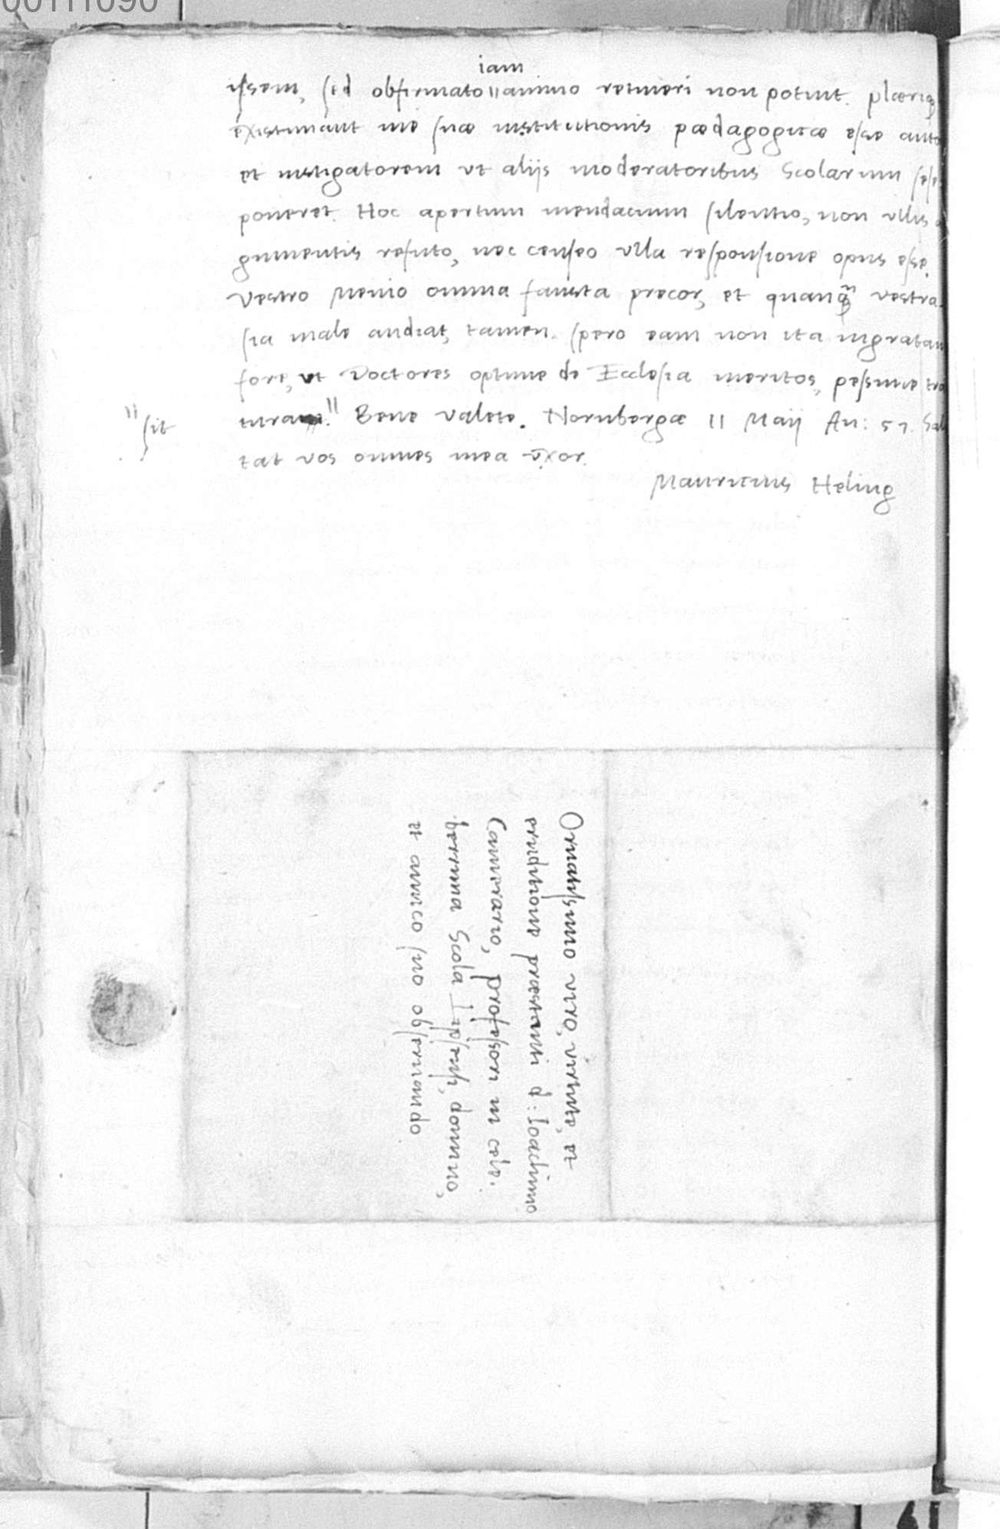 00111090
iam
issem, sed obfirmato animo retineri non potuit. plæriq
existimant me suæ institutionis pædagogicæ esse auto
et instigatorem ut aliis moderatoribus Scolarum sese
poneret. Hoc apertum mendacium silentio, non ullis a
gumentis refuto, nec censeo ulla responsione opus esse.
Vestro Menio omnia fausta precor, et quanq vestra
sia male audiat, tamen spero eam non ita ingratam
fore, ut Doctores optime de Ecclesia meritos, pessime tra
"sit
tura". Bene valete. Nornbergæ 11 Maij An: 57. Sal
tat vos omnes mea uxor.
Mauricius Heling
Ornatissimo viro, virtute, et
eruditione præstanti d: Ioachimo
Camerario, professori in cele-
berrima Scola Lipsensi, domino,
et amico suo observando